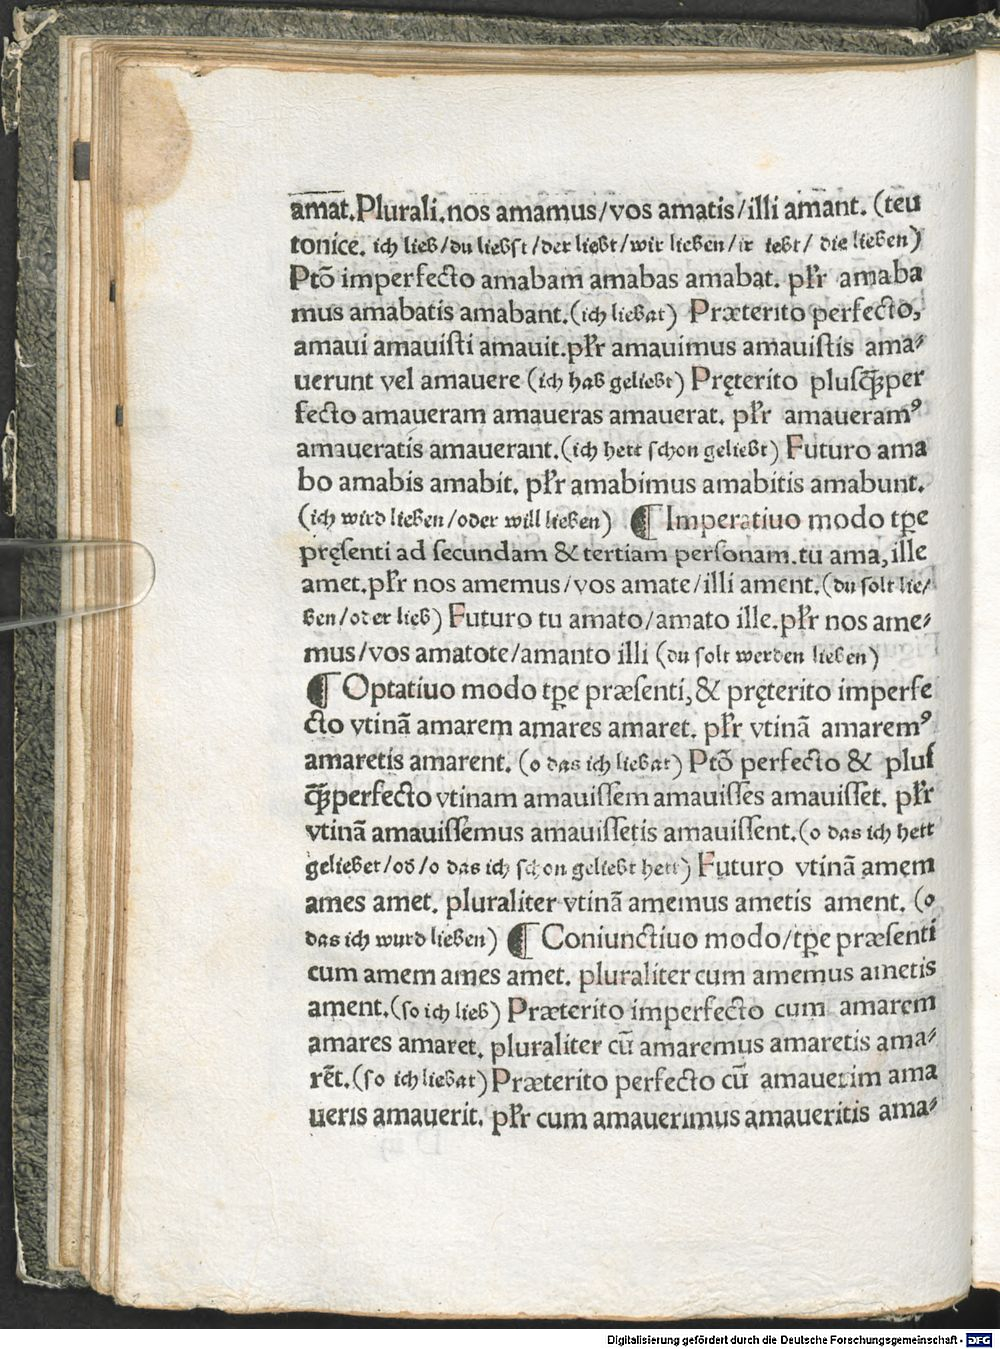 amat.Plurali.nos amamus/vos amatis/illi amãnt. (teu
tonice. ich lieb/du liebst/der liebt/wir lieben/ir lebt/ die lieben)
Ptõ imperfecto amabam amabas amabat. pl̃r amaba
mus amabatis amabant.(ich liebat) Præterito perfecto,
amaui amauisti amauit.pl̃r amauimus amauistis ama⸗
uerunt vel amauere (ich hab geliebt) Pręterito plusq̃per
fecto amaueram amaueras amauerat. pl̃r amaueramꝰ
amaueratis amauerant.(ich hett schon geliebt) Futuro ama
bo amabis amabit. pl̃r amabimus amabitis amabunt.
(ich wird lieben/oder will lieben) ¶ Imperatiuo modo tꝑe
pręsenti ad secundam & tertiam personam.tu ama, ille
amet.pl̃r nos amemus/vos amate/illi ament.(du solt lie/
ben/oder lieb) Futuro tu amato/amato ille.pl̃r nos ame⸗
mus/vos amatote/amanto illi (du solt werden lieben)
¶ Optatiuo modo tꝑe præsenti,& pręterito imperfe
cto vtinã amarem amares amaret. pl̃r vtinã amaremꝰ
amaretis amarent. (o das ich liebat) Ptõ perfecto & pluſ
q̃perfecto vtinam amauissem amauisses amauisset. pl̃r
vtinã amauissemus amauissetis amauissent.(o das ich hett
geliebet/od/o das ich schon geliebt hett) Futuro vtinã amem
ames amet. pluraliter vtinã amemus ametis ament. (o
das ich wurd lieben) ¶ Coniunctiuo modo/tꝑe præsenti
cum amem ames amet. pluraliter cum amemus ametis
ament.(so ich lieb) Præterito imperfecto cum amarem
amares amaret. pluraliter cũ amaremus amaretis ama⸗
rẽt.(so ich liebat) Præterito perfecto cũ amauerim ama
ueris amauerit. pl̃r cum amauerimus amaueritis ama⸗
Digitalisierung gefördert durch die Deutsche Forschungsgemeinschaft - DFG